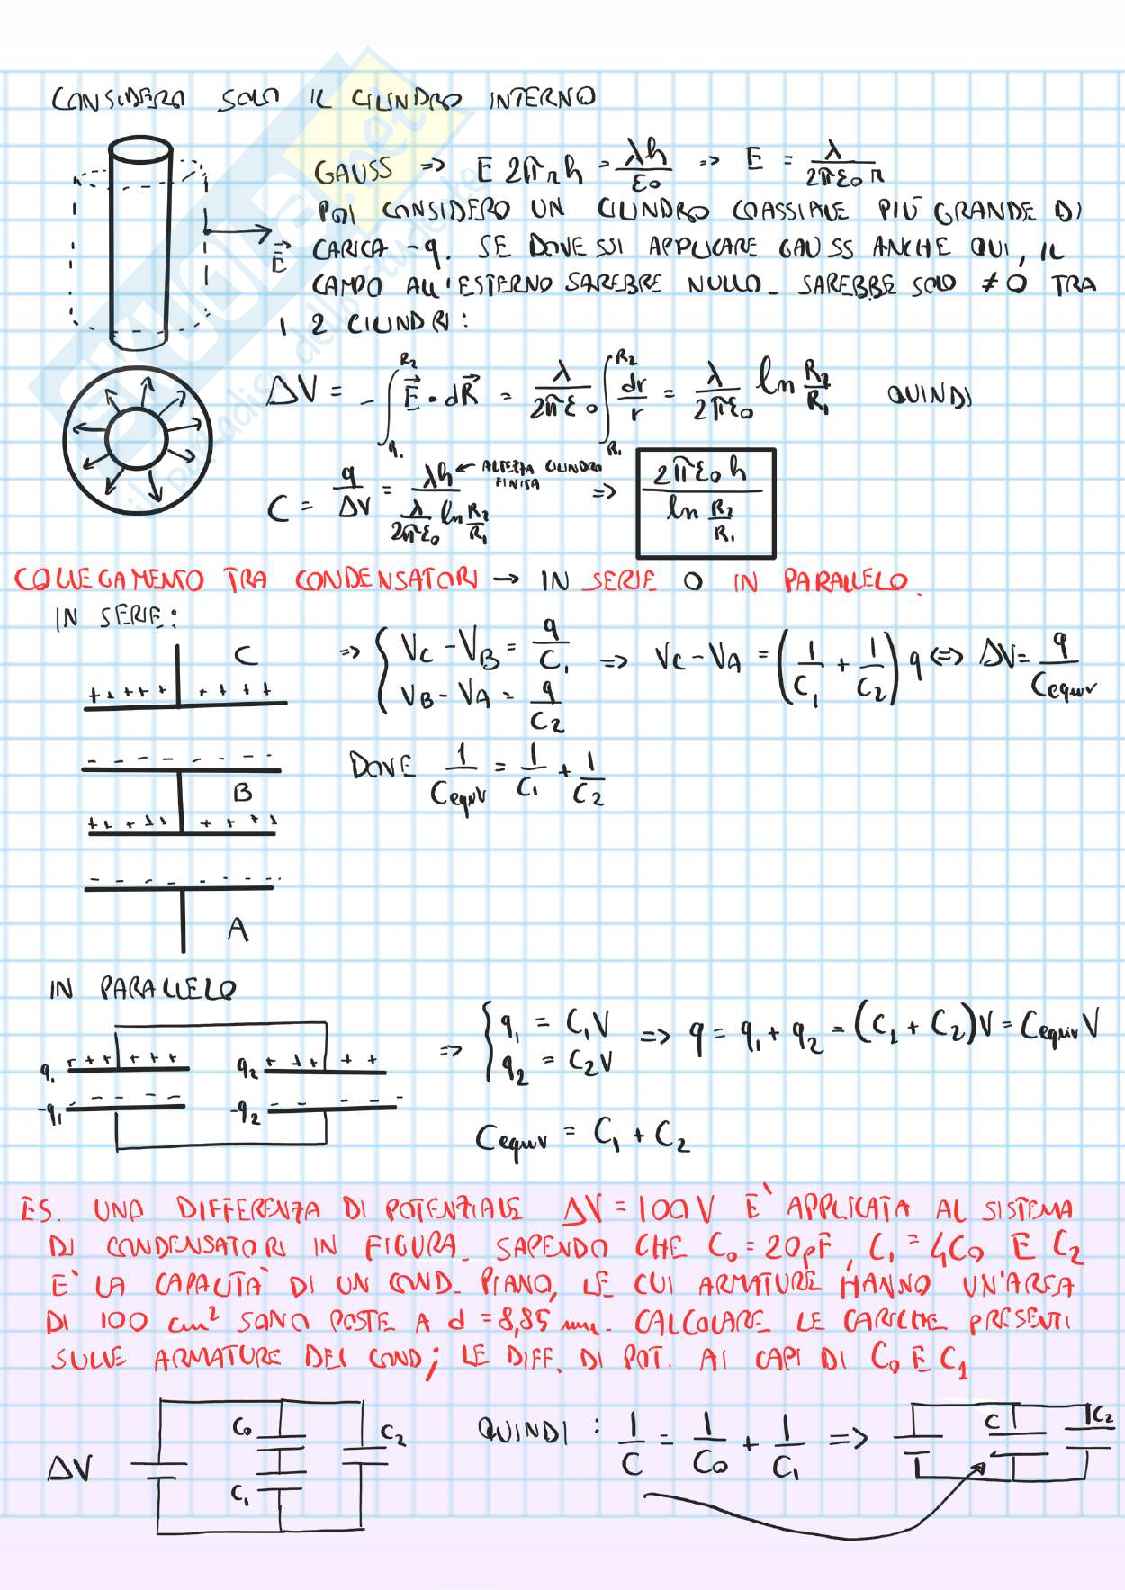 CONSIDERO SOLO IL CILINDRO INTERNO
GAUSS => E 2πrh = λh/ε0 => E = λ/2πε0 r
POI CONSIDERO UN CILINDRO COASSIALE PIÙ GRANDE DI
E CARICA -q. SE DOVESSI APPLICARE GAUSS ANCHE QUI, IL
CAMPO ALL'ESTERNO SAREBBE NULLO. SAREBBE SOLO ≠ 0 TRA
I 2 CILINDRI:
ΔV = -∫R1 R2 E · dR = λ/2πε0 ∫R1 R2 dr/r = λ/2πε0 ln R2/R1 QUINDI
C = q/ΔV = λh / (λ/2πε0 ln R2/R1) ← ALTEZZA CILINDRO FINITA => 2πε0 h / ln R2/R1
COLLEGAMENTO TRA CONDENSATORI → IN SERIE O IN PARALLELO.
IN SERIE:
C
=> { VC - VB = q/C1
VB - VA = q/C2 => VC - VA = (1/C1 + 1/C2) q <=> ΔV = q/Cequiv
DOVE 1/Cequiv = 1/C1 + 1/C2
B
A
IN PARALLELO
q1 q2
-q1 -q2
=> { q1 = C1V
q2 = C2V => q = q1 + q2 = (C1 + C2)V = Cequiv V
Cequiv = C1 + C2
ES. UNA DIFFERENZA DI POTENZIALE ΔV = 100V È APPLICATA AL SISTEMA
DI CONDENSATORI IN FIGURA. SAPENDO CHE C0 = 20pF, C1 = 4C0 E C2
E' LA CAPACITA' DI UN COND. PIANO, LE CUI ARMATURE HANNO UN'AREA
DI 100 cm² SONO POSTE A d = 8,85 mm. CALCOLARE LE CARICHE PRESENTI
SULLE ARMATURE DEI COND; LE DIFF. DI POT. AI CAPI DI C0 E C1
ΔV C0 C1 C2
QUINDI: 1/C = 1/C0 + 1/C1 => C C2